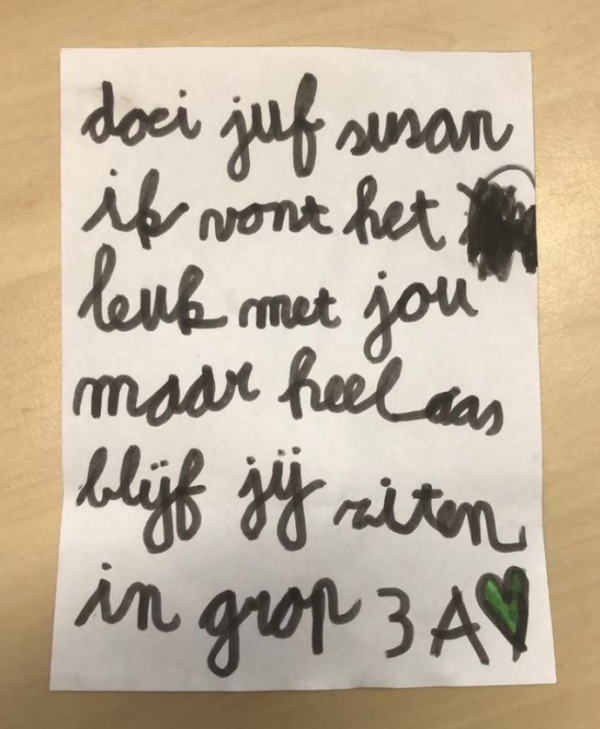 doei juf susan
ik vont het
leuk met jou
maar heel aas
blijf jij ziten
in grop 3A